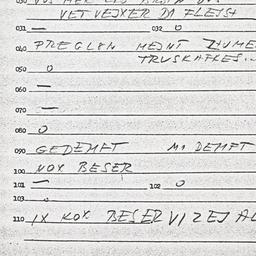 VET VEJXER DA FLEISH
031 — 032 O
040 PREGLEN MEJNT ZIUME
TRUSKAFKES..
050 O
060 —
070 —
080 O
090 GEDEMFT MA DEMFT
100 NOX BESER
101 — 102 O
103 O
110 IX KOX BESER VI ZEJ AL